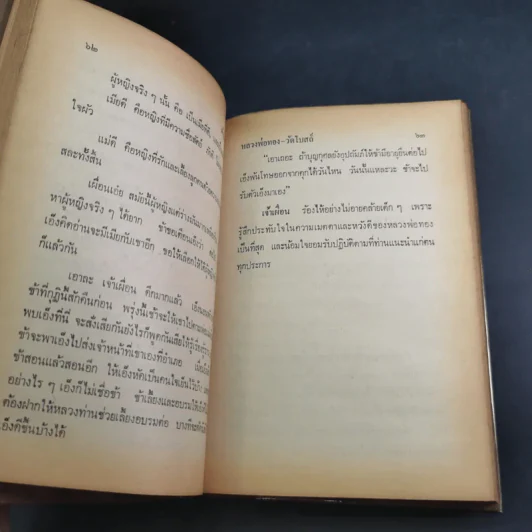 ๖๒
ผู้หญิงจริง ๆ นั้น คือ เป็นเมียที่ดี
เมียดี คือหญิงที่มีความซื่อสัตย์
ใจผัว
แม่ดี คือหญิงที่รักและเลี้ยงลูก
สละทั้งสิ้น
เผื่อนเอ๋ย สมัยนี้ผู้หญิงแต่
หาผู้หญิงจริง ๆ ได้ยาก ข้าขอเตือนเอ็งว่า
เอ็งคิดอ่านจะมีเมียกับเขาอีก ขอให้เลือกให้ได้
ก็แล้วกัน
เอาละ เจ้าเผื่อน ดึกมากแล้ว
ข้าที่กุฏินี้สักคืนก่อน พรุ่งนี้เช้าจะให้เขาไป
พบเอ็งที่นี่ จะสั่งเสียกันยังไรก็พูดกันเสียให้รู้
ข้าจะพาเอ็งไปส่งเจ้าหน้าที่เขาเองที่อำเภอ
ข้าสอนแล้วสอนอีก ให้เอ็งหัดเป็นคนใจเย็นไว้บ้าง
อย่างไร ๆ เอ็งก็ไม่เชื่อข้า ข้าเลี้ยงและอบรมให้เอ็งดี
ต้องฝากให้หลวงท่านช่วยเลี้ยงอบรมต่อ บางที
เอ็งดีขึ้นบ้างได้
หลวงพ่อทอง–วัดโบสถ์
๖๓
"เอาเถอะ ถ้าบุญกุศลยังอุปถัมภ์ให้ข้ามีอายุยืนต่อไป
เอ็งพ้นโทษออกจากคุกได้วันไหน วันนั้นแหละวะ ข้าจะไป
รับตัวเอ็งมาเอง"
เจ้าเผื่อน ร้องไห้อย่างไม่อายคล้ายเด็ก ๆ เพราะ
รู้สึกประทับใจในความเมตตาและหวังดีของหลวงพ่อทอง
เป็นที่สุด และน้อมใจยอมรับปฏิบัติตามที่ท่านแนะนำแก่ตน
ทุกประการ